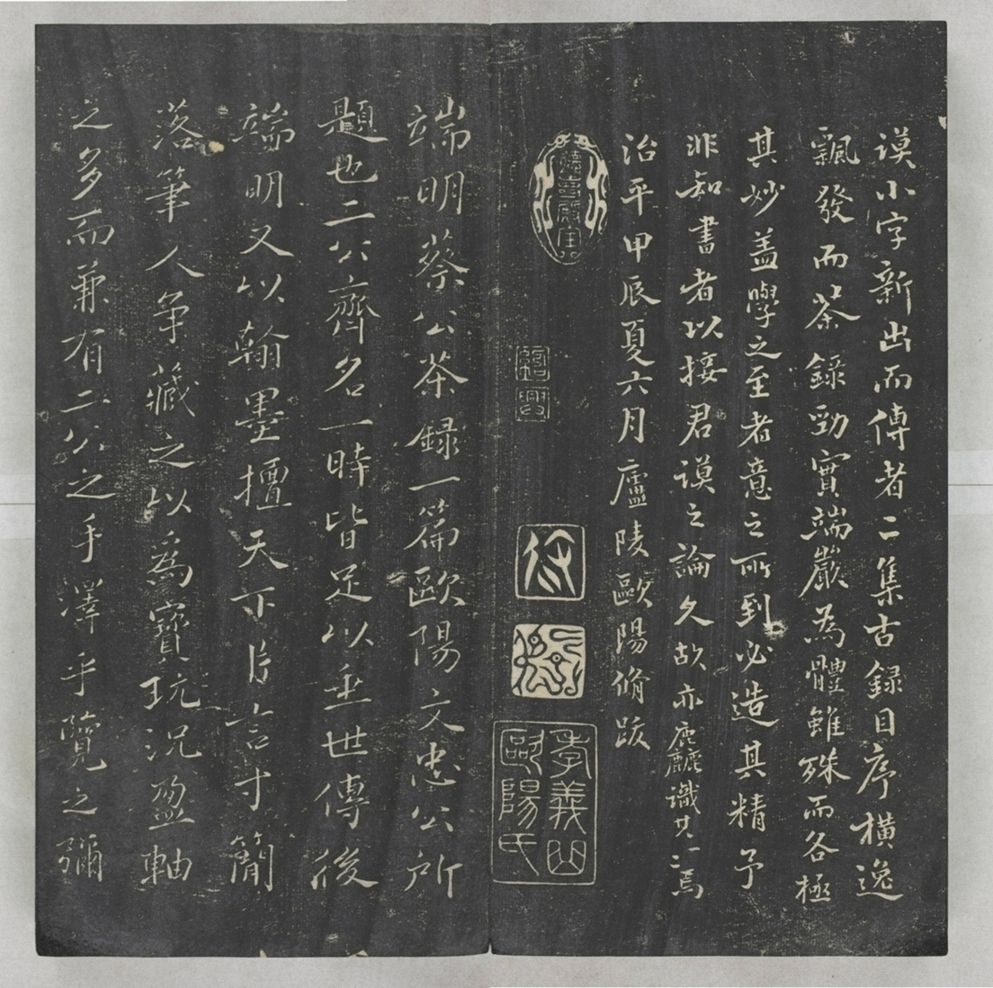 謨小字新出而傳者二集古録目序横逸
飄發而茶録勁實端嚴為體雖殊而各極
其妙盖學之至者意之所到必造其精予
非知書者以接君謨之論久故亦麤識其一二焉
治平甲辰夏六月廬陵歐陽脩跋
紹興
孝義
歐陽氏
端明蔡公茶録一篇歐陽文忠公所
題也二公齊名一時皆足以垂世傳後
端明又以翰墨擅天下片言寸簡
落筆人争藏之以為寳玩況盈軸
之多而兼有二公之手澤乎覽之彌